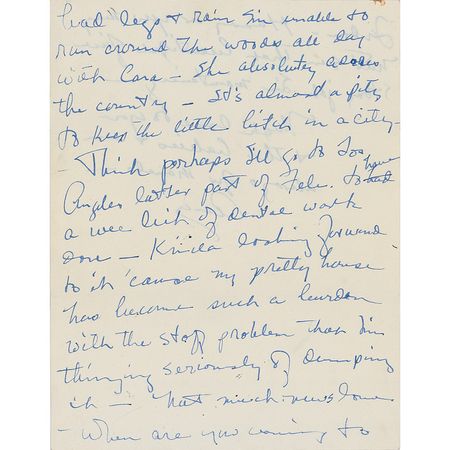 bad" legs & rain I'm unable to
run around the woods all day
with Cara – She absolutey adores
the country – It's almost a pity
to keep the little bitch in a city –
– Think perhaps I'll go to Los
Angeles latter part of Feb. to have
a wee bit of dental work
done – Kinda looking forward
to it 'cause my pretty house
has become such a burdon
with the staff problem that I'm
thinging seriously of dumping
it – 'Nat much news love
– When are you coming to